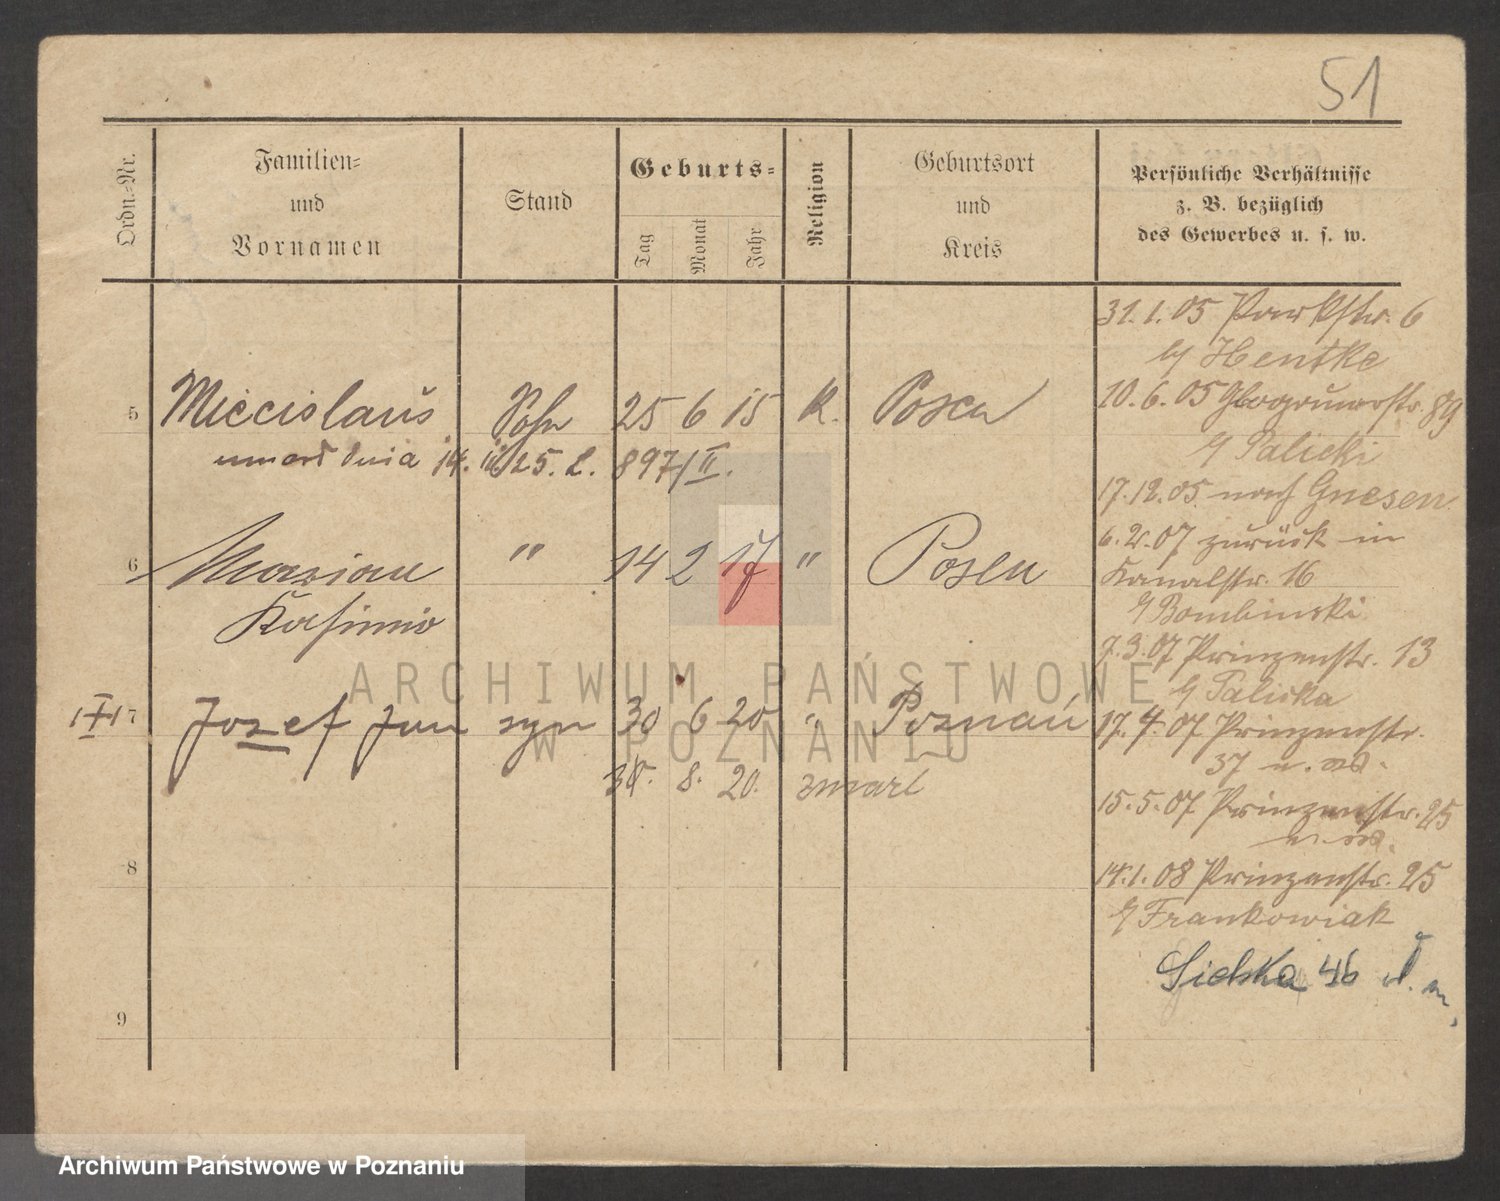 51
Ordn.-Nr.
Familien-
und
Vornamen
Stand
Geburts-
Tag
Monat
Jahr
Religion
Geburtsort
und
Kreis
Persönliche Verhältnisse
z. B. bezüglich
des Gewerbes u. s. w.
5 Miecislaus Sohn 25 6 15 k. Posen
umarł dnia 14. 25. 2. 897/II.
6 Marian " 14 2 17 " Posen
Kasimir
7 Jozef Jan syn 30 6 20 " Poznań
31. 8. 20. zmarł
8
9
31. 1. 05 Parkstr. 6
b/ Hentke
10. 6. 05 Glogauerstr. 89
b/ Palicki
17. 12. 05 nach Gnesen
6. 2. 07 zurück in
Kanalstr. 16
b/ Bombinski
7. 3. 07 Prinzenstr. 13
b/ Palicka
17. 4. 07 Prinzenstr.
37
15. 5. 07 Prinzenstr. 25
14. 1. 08 Prinzenstr. 25
b/ Frankowiak
46 d. m.
ARCHIWUM PAŃSTWOWE
W POZNANIU
Archiwum Państwowe w Poznaniu